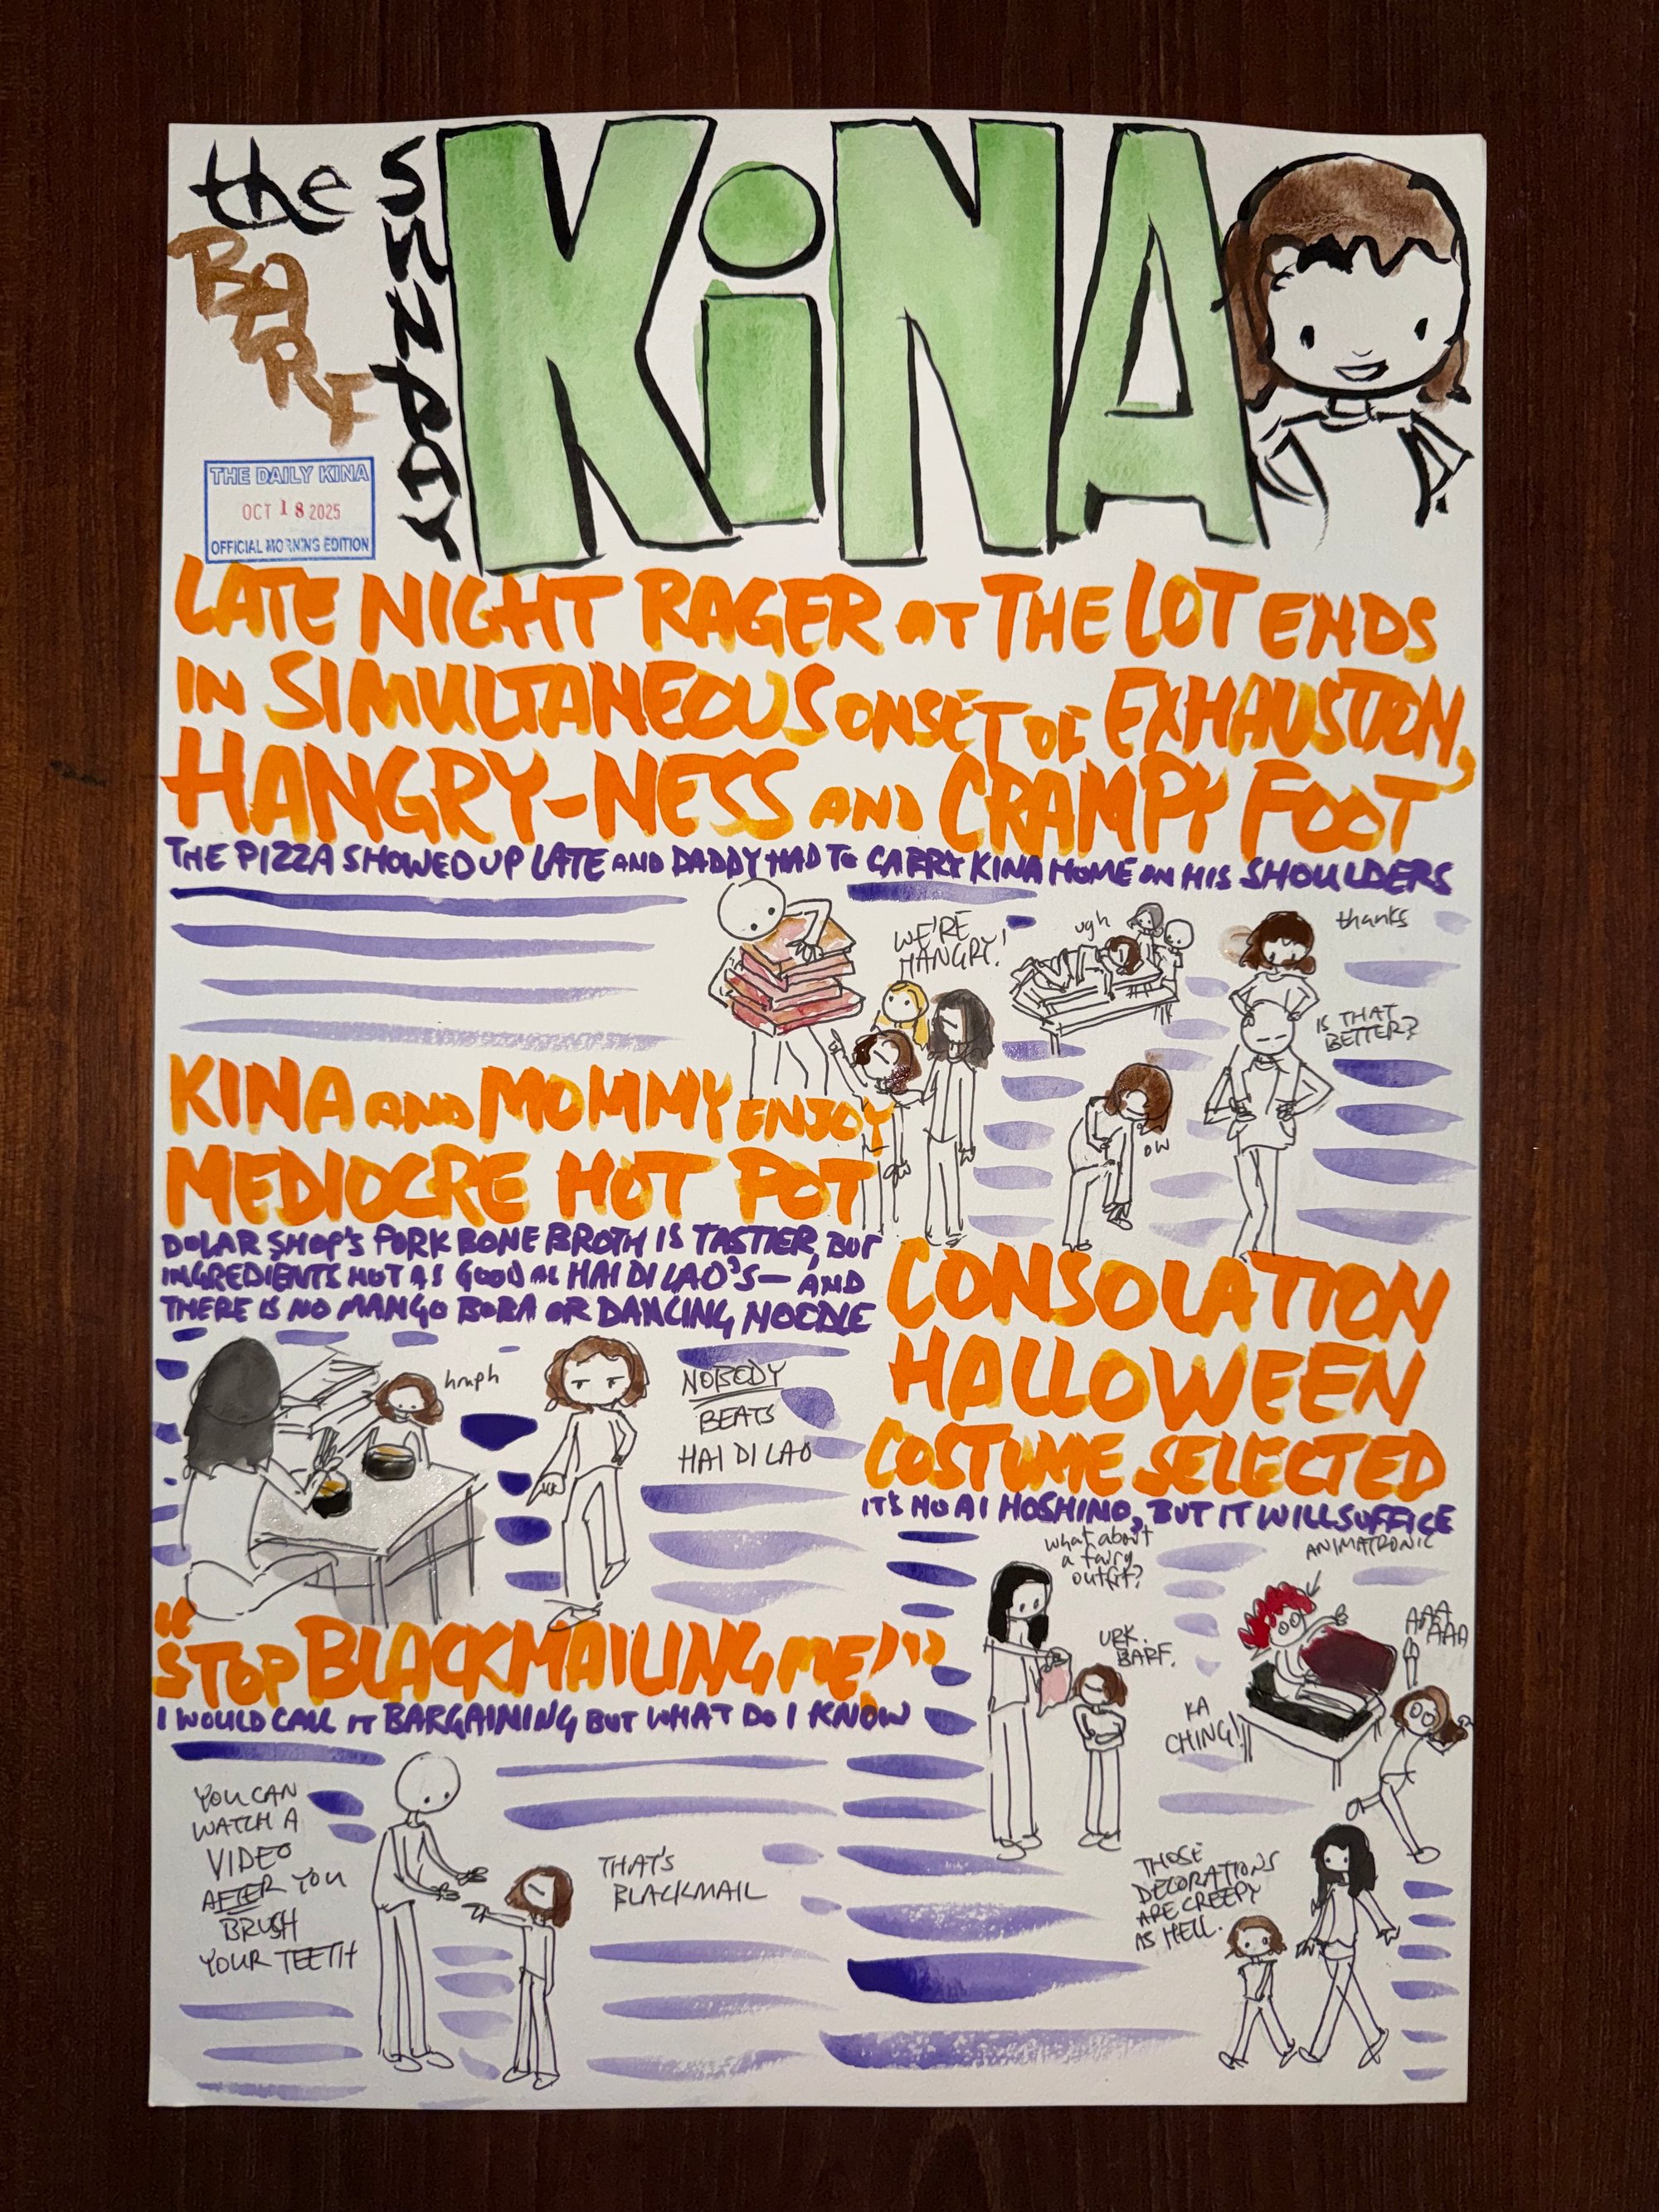 the
BARF
SUNDAY
KiNA
THE DAILY KINA
OCT 18 2025
OFFICIAL MORNING EDITION
LATE NIGHT RAGER AT THE LOT ENDS
IN SIMULTANEOUS ONSET OF EXHAUSTION,
HANGRY-NESS AND CRAMPY FOOT
THE PIZZA SHOWED UP LATE AND DADDY HAD TO CARRY KINA HOME ON HIS SHOULDERS
WE'RE
HANGRY!
ugh
thanks
IS THAT
BETTER?
OW
KINA AND MOMMY ENJOY
MEDIOCRE HOT POT
DOLAR SHOP'S PORK BONE BROTH IS TASTIER, BUT
INGREDIENTS NOT AS GOOD AS HAI DI LAO'S— AND
THERE IS NO MANGO BOBA OR DANCING NOODLE
hmph
NOBODY
BEATS
HAI DI LAO
CONSOLATION
HALLOWEEN
COSTUME SELECTED
IT'S NO AI HOSHINO, BUT IT WILL SUFFICE
what about
a fairy
outfit?
URK.
BARF.
ANIMATRONIC
AAA
AAAA
KA
CHING!
THOSE
DECORATIONS
ARE CREEPY
AS HELL.
"STOP BLACKMAILING ME!"
I WOULD CALL IT BARGAINING BUT WHAT DO I KNOW
YOU CAN
WATCH A
VIDEO
AFTER YOU
BRUSH
YOUR TEETH
THAT'S
BLACKMAIL